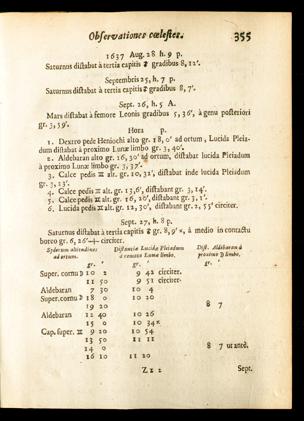 Observationes cœlestes. 355
1637 Aug. 28 h. 9 p.
Saturnus distabat à tertia capitis ♉ gradibus 8, 12'.
Septembris 25, h. 7 p.
Saturnus distabat à tertia capitis ♉ gradibus 8, 7'.
Sept. 26, h. 5 A.
Mars distabat à femore Leonis gradibus 5, 36', à genu posteriori
gr. 3, 59'.
Hora p.
1. Dextro pede Heniochi alto gr. 18, 0' ad ortum, Lucida Pleia-
dum distabat à proximo Lunæ limbo gr. 3, 40'.
2. Aldebaran alto gr. 16, 30' ad ortum, distabat lucida Pleiadum
à proximo Lunæ limbo gr. 3, 37'.
3. Calce pedis ♊ alt. gr. 10, 32', distabat inde lucida Pleiadum
gr. 3, 13'.
4. Calce pedis ♊ alt. gr. 13, 6', distabant gr. 3, 14'.
5. Calce pedis ♊ alt. gr. 16, 20', distabant gr. 3, 1'.
6. Lucida pedis ♊ alt. gr. 12, 30', distabant gr. 2, 55' circiter.
Sept. 27, h. 8 p.
Saturnus distabat à tertia capitis ♉ gr. 8, 9', medio in contactu
boreo gr. 6, 26' circiter.
Syderum altitudines Distantiæ Lucidæ Pleiadum Dist. Aldebaran à
ad ortum. à remoto Lunæ limbo. proximo ☽ limbo.
gr. ' gr. ' gr. '
Super. cornu 10 2 9 42 circiter.
11 50 9 51 circiter.
Aldebaran 7 30 10 4
Super. cornu 18 0 10 20
19 20 8 7
Aldebaran 12 40 10 26
15 0 10 34
Cap. super. ♊ 9 20 10 54
13 50 11 11
14 0 8 7 ut antè.
16 10 11 20
Zzz Sept.